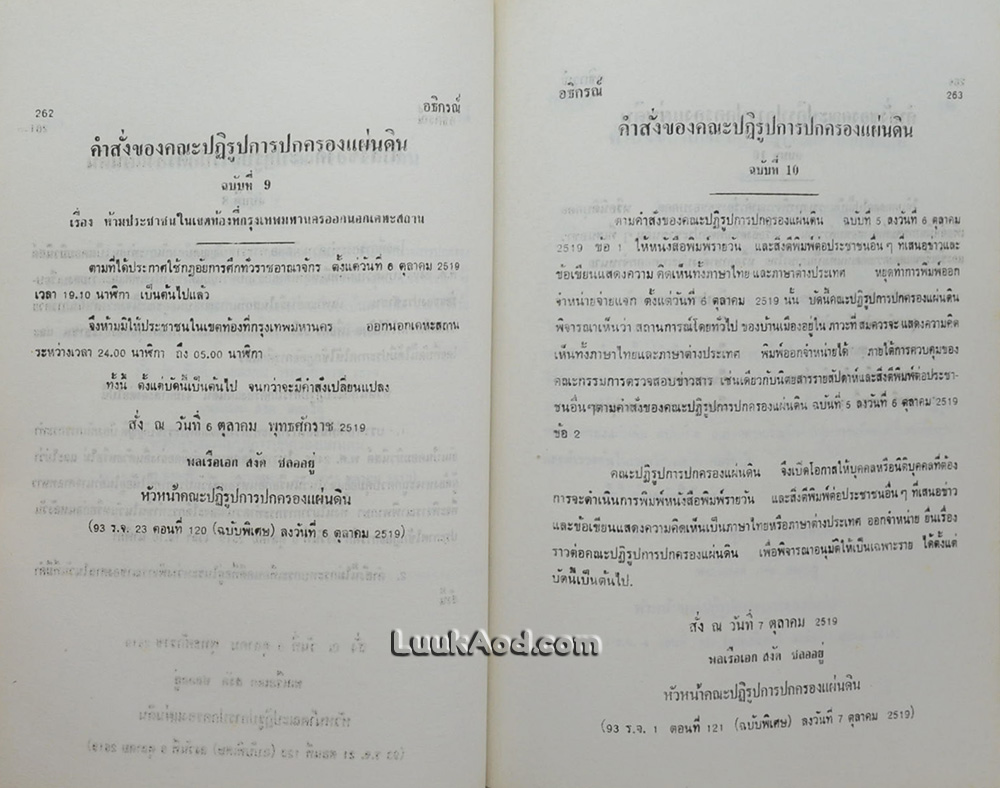 262
อธิกรณ์
คำสั่งของคณะปฏิรูปการปกครองแผ่นดิน
ฉบับที่ 9
เรื่อง ห้ามประชาชนในเขตท้องที่กรุงเทพมหานครออกนอกเคหะสถาน
ตามที่ได้ประกาศใช้กฎอัยการศึกทั่วราชอาณาจักร ตั้งแต่วันที่ 6 ตุลาคม 2519
เวลา 19.10 นาฬิกา เป็นต้นไปแล้ว
จึงห้ามมิให้ประชาชนในเขตท้องที่กรุงเทพมหานคร ออกนอกเคหะสถาน
ระหว่างเวลา 24.00 นาฬิกา ถึง 05.00 นาฬิกา
ทั้งนี้ ตั้งแต่บัดนี้เป็นต้นไป จนกว่าจะมีคำสั่งเปลี่ยนแปลง
สั่ง ณ วันที่ 6 ตุลาคม พุทธศักราช 2519
พลเรือเอก สงัด ชลออยู่
หัวหน้าคณะปฏิรูปการปกครองแผ่นดิน
(93 ร.จ. 23 ตอนที่ 120 (ฉบับพิเศษ) ลงวันที่ 6 ตุลาคม 2519)
อธิกรณ์
263
คำสั่งของคณะปฏิรูปการปกครองแผ่นดิน
ฉบับที่ 10
ตามคำสั่งของคณะปฏิรูปการปกครองแผ่นดิน ฉบับที่ 5 ลงวันที่ 6 ตุลาคม
2519 ข้อ 1 ให้หนังสือพิมพ์รายวัน และสิ่งตีพิมพ์ต่อประชาชนอื่นๆ ที่เสนอข่าวและ
ข้อเขียนแสดงความ คิดเห็นทั้งภาษาไทย และภาษาต่างประเทศ หยุดทำการพิมพ์ออก
จำหน่ายจ่ายแจก ตั้งแต่วันที่ 6 ตุลาคม 2519 นั้น บัดนี้คณะปฏิรูปการปกครองแผ่นดิน
พิจารณาเห็นว่า สถานการณ์โดยทั่วไป ของบ้านเมืองอยู่ใน ภาวะที่ สมควรจะ แสดงความคิด
เห็นทั้งภาษาไทยและภาษาต่างประเทศ พิมพ์ออกจำหน่ายได้ ภายใต้การควบคุมของ
คณะกรรมการตรวจสอบข่าวสาร เช่นเดียวกับนิตยสารรายสัปดาห์และสิ่งตีพิมพ์ต่อประชา-
ชนอื่นๆตามคำสั่งของคณะปฏิรูปการปกครองแผ่นดิน ฉบับที่ 5 ลงวันที่ 6 ตุลาคม 2519
ข้อ 2
คณะปฏิรูปการปกครองแผ่นดิน จึงเปิดโอกาสให้บุคคลหรือนิติบุคคลที่ต้อง
การจะดำเนินการพิมพ์หนังสือพิมพ์รายวัน และสิ่งตีพิมพ์ต่อประชาชนอื่นๆ ที่เสนอข่าว
และข้อเขียนแสดงความคิดเห็นเป็นภาษาไทยหรือภาษาต่างประเทศ ออกจำหน่าย ยื่นเรื่อง
ราวต่อคณะปฏิรูปการปกครองแผ่นดิน เพื่อพิจารณาอนุมัติให้เป็นเฉพาะราย ได้ตั้งแต่
บัดนี้เป็นต้นไป.
สั่ง ณ วันที่ 7 ตุลาคม 2519
พลเรือเอก สงัด ชลออยู่
หัวหน้าคณะปฏิรูปการปกครองแผ่นดิน
(93 ร.จ. 1 ตอนที่ 121 (ฉบับพิเศษ) ลงวันที่ 7 ตุลาคม 2519)
LuukAod.com